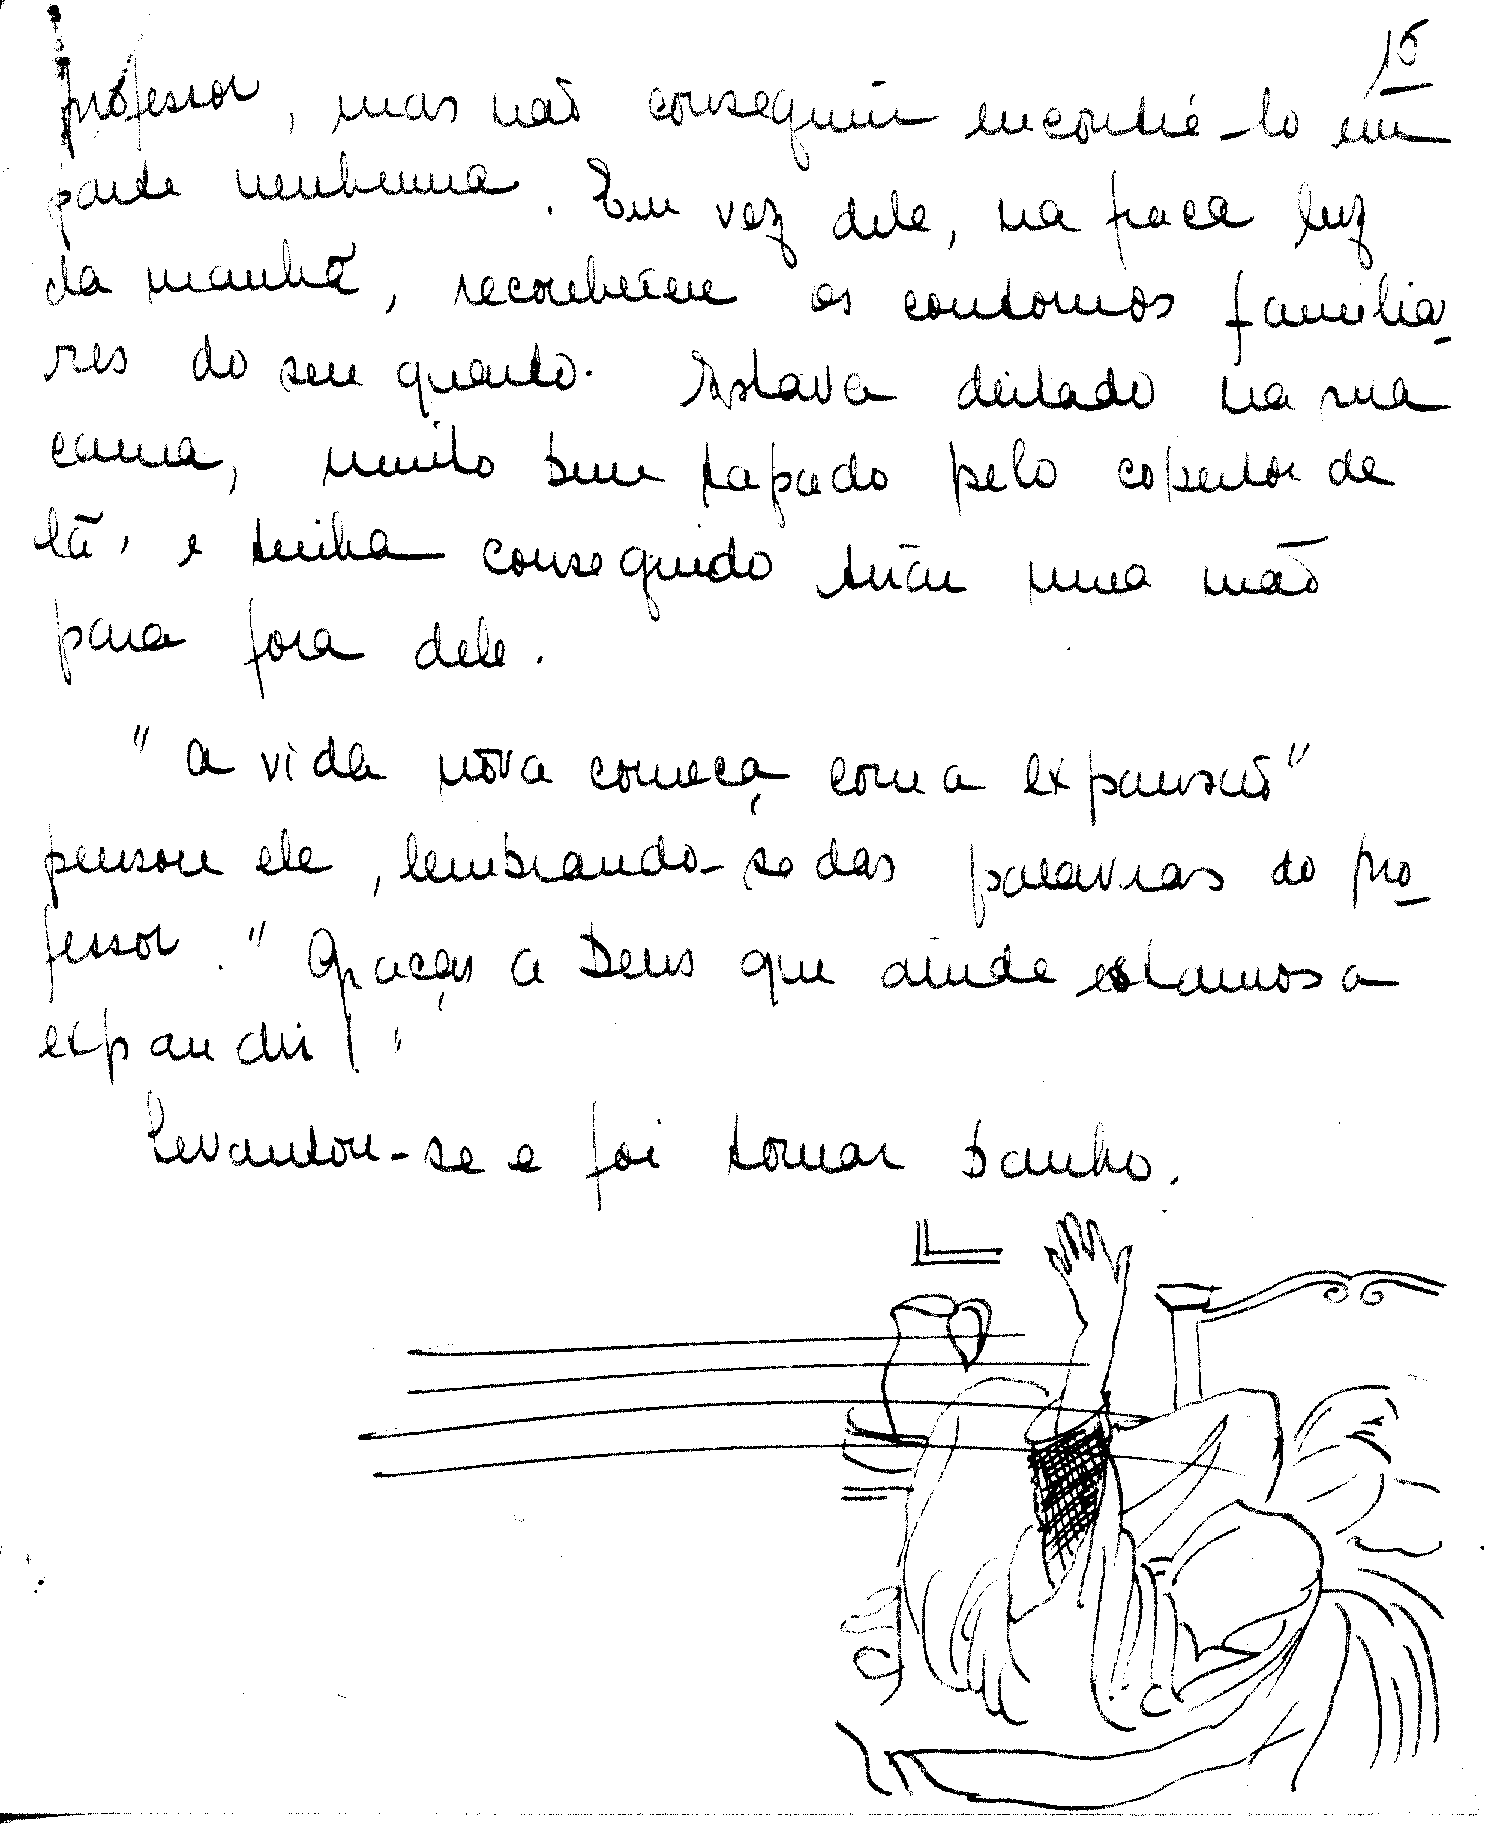 15
professor, mas não conseguiu encontrá-lo em
parte nenhuma. Em vez dele, na fraca luz
da manhã, reconheceu os contornos familia-
res do seu quarto. Estava deitado na sua
cama, muito bem tapado pelo cobertor de
lã, e tinha conseguido tirar uma mão
para fora dele.
"A vida nova começa com a expansão"
pensou ele, lembrando-se das palavras do pro-
fessor. "Graças a Deus que ainda estamos a
expandir!"
Levantou-se e foi tomar banho.